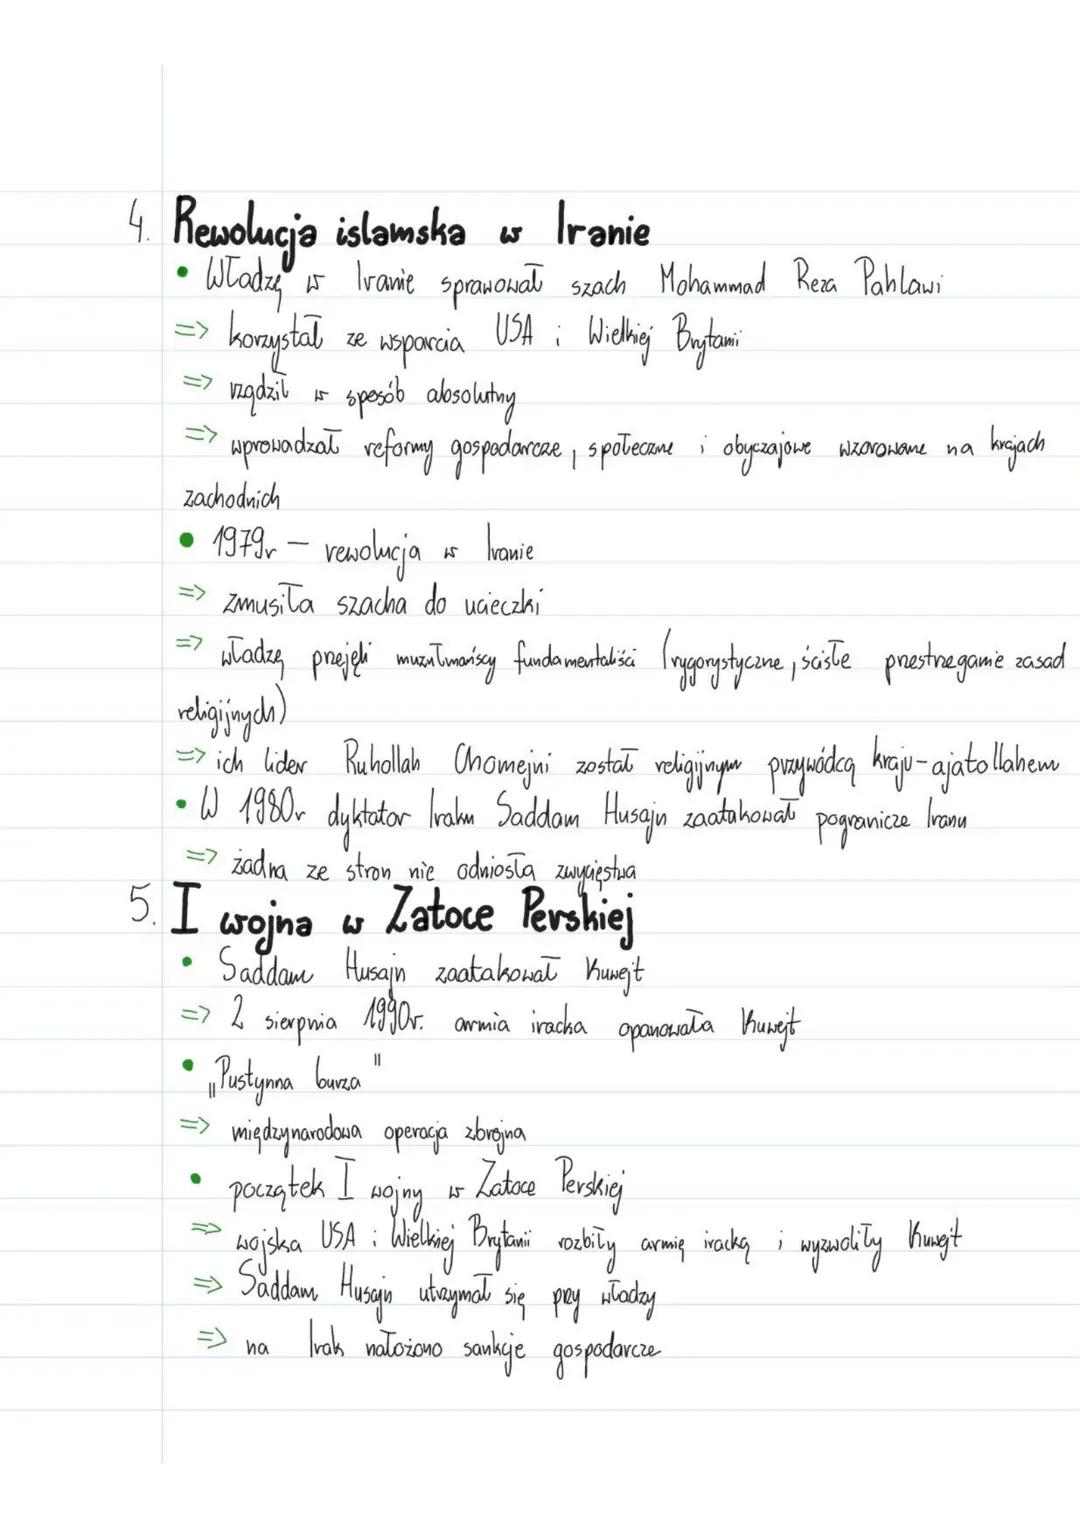 4. Rewolucja islamska w Iranie
• Władzę w Iranie sprawował szach Mohammad Reza Pahlawi
=> korzystał ze wsparcia USA i Wielkiej Brytanii
=> rządził w sposób absolutny
=> wprowadzał reformy gospodarcze, społeczne i obyczajowe wzorowane na krajach
zachodnich
• 1979r – rewolucja w Iranie
=> zmusiła szacha do ucieczki
=> władzę przejęli muzułmańscy fundamentaliści (rygorystyczne, ścisłe przestrzeganie zasad
religijnych)
=> ich lider Ruhollah Chomejni został religijnym przywódcą kraju - ajatollahem
• W 1980r dyktator Iraku Saddam Husajn zaatakował pogranicze Iranu
=> żadna ze stron nie odniosła zwycięstwa
5. I wojna w Zatoce Perskiej
• Saddam Husajn zaatakował Kuwejt
=> 2 sierpnia 1990r. armia iracka opanowała Kuwejt
• „Pustynna burza"
=> międzynarodowa operacja zbrojna
• początek I wojny w Zatoce Perskiej
=> wojska USA i Wielkiej Brytanii rozbiły armię iracką i wyzwoliły Kuwejt
=> Saddam Husajn utrzymał się przy władzy
=> na Irak nałożono sankcje gospodarcze